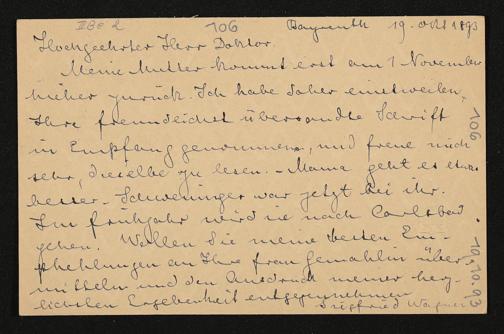 IIBe 2 106 Bayreuth 19. Okt 1893
Hochgeehrter Herr Doktor.
Meine Mutter kommt erst am 1 November
hieher zurück. Ich habe daher einstweilen
Ihre freundlichst übersandte Schrift
in Empfang genommen, und freue mich
sehr, dieselbe zu lesen. – Mama geht es etwas
besser – Schweninger war jetzt bei ihr.
Im Frühjahr wird sie nach Carlsbad
gehen. Wollen Sie meine besten Em-
pfehlungen an Ihre Frau Gemahlin über
mitteln und den Ausdruck meiner herz-
lichsten Ergebenheit entgegennehmen
Siegfried Wagner
106
10.93